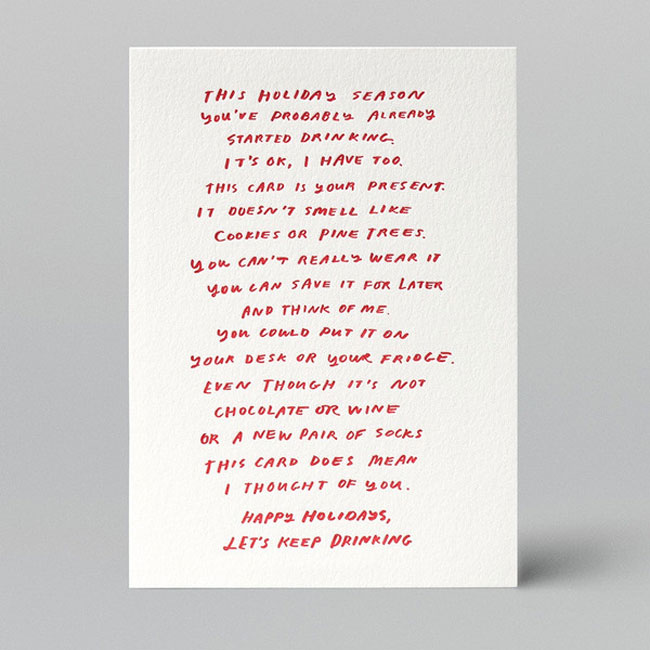 THIS HOLIDAY SEASON
YOU'VE PROBABLY ALREADY
STARTED DRINKING.
IT'S OK, I HAVE TOO.
THIS CARD IS YOUR PRESENT.
IT DOESN'T SMELL LIKE
COOKIES OR PINE TREES.
YOU CAN'T REALLY WEAR IT
YOU CAN SAVE IT FOR LATER
AND THINK OF ME.
YOU COULD PUT IT ON
YOUR DESK OR YOUR FRIDGE.
EVEN THOUGH IT'S NOT
CHOCOLATE OR WINE
OR A NEW PAIR OF SOCKS
THIS CARD DOES MEAN
I THOUGHT OF YOU.
HAPPY HOLIDAYS,
LET'S KEEP DRINKING